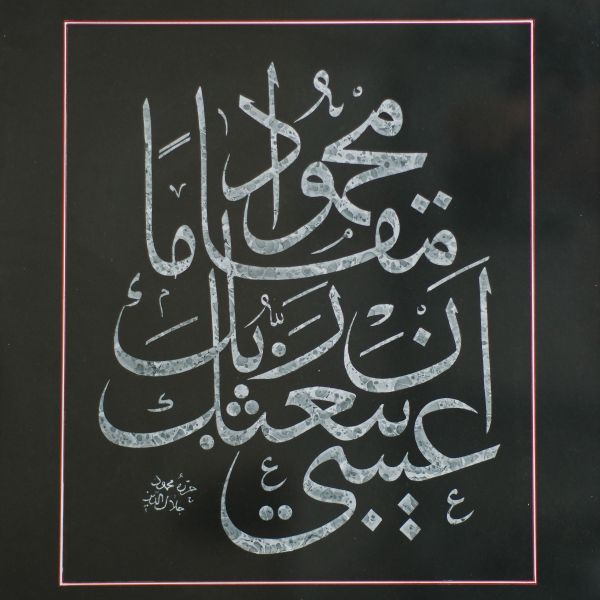 عسى
أن يبعثك
ربك
مقامًا
محمودا
حرره محمود
جلال الدين